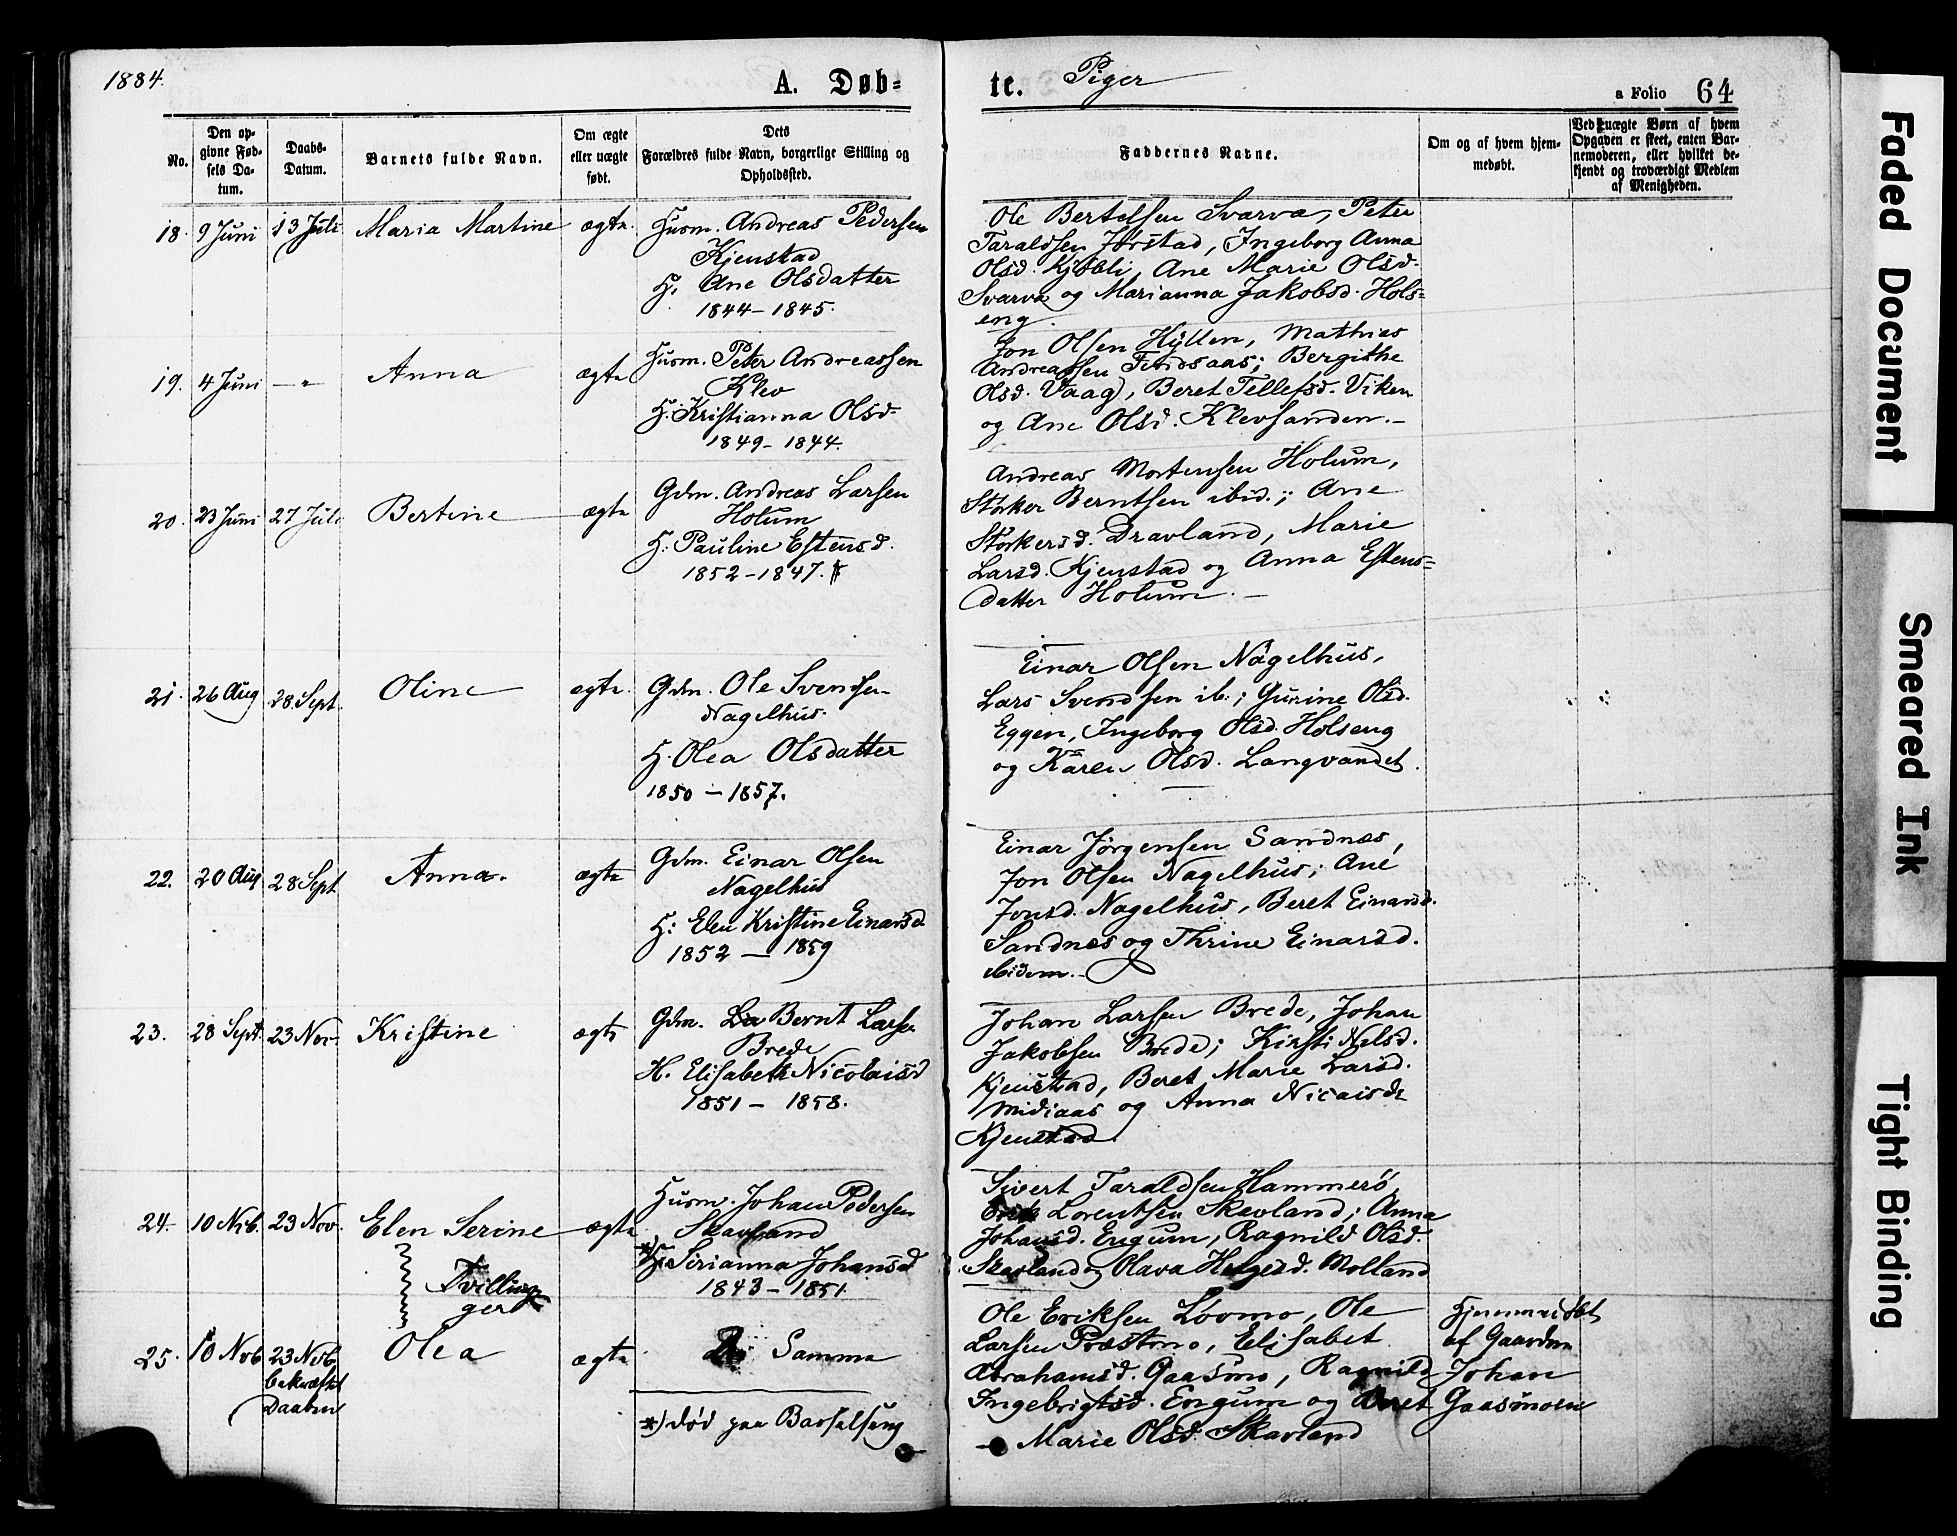 1884.
A. Døb=
te. Piger
a Folio 64
No.
Den op-
givne Fød-
sels Da-
tum.
Daabs-
Datum.
Barnets fulde Navn.
Om ægte
eller uægte
født.
Dets
Forældres fulde Navn, borgerlige Stilling og
Opholdssted.
Faddernes Navne.
Om og af hvem hjem-
medøbt.
Ved uægte Børn af hvem
Opgaven er skeet, enten Bar-
nemoderen, eller hvilket be-
kjendt og troværdigt Medlem
af Menigheden.
18. 9 Juni 13 Juli Maria Martine ægte
Husm. Andreas Pedersen
Kjenstad
H. Ane Olsdatter
1844 - 1845.
Ole Bertelsen Svarva, Peter
Taraldsen Jørstad, Ingeborg Anna
Olsd. Kjøbli, Ane Marie Olsd.
Svarva og Marianna Jakobsd. Hols=
eng.
19. 4 Juni — " Anna ægte
Husm. Peter Andreassen
Klev
H. Kristianna Olsd.
1849 - 1844.
Jon Olsen Hyllen, Mathias
Andreassen Findsaas; Bergithe
Olsd. Vaag, Beret Tellefsd. Viken
og Ane Olsd. Klevsanden. —
20. 23 Juni 27 Juli Bertine ægte
Gdm. Andreas Larsen
Holum
H. Pauline Estensd.
1852 - 1847.
Andreas Mortensen Holum,
Størker Berntsen ibid.; Ane
Størkersd. Dravland, Marie
Larsd. Kjenstad og Anna Estens=
datter Holum. —
21. 26 Aug 28 Sept. Oline ægte
Gdm. Ole Svendsen
Nagelhus.
H. Olea Olsdatter
1850 - 1857.
Einar Olsen Nagelhus,
Lars Svendsen ib.; Gurine Olsd.
Eggen, Ingeborg Olsd. Holseng
og Karen Olsd. Langvandet.
22. 20 Aug 28 Sept. Anna. ægte
Gdm. Einar Olsen
Nagelhus
H: Elen Kristine Einarsd
1852 — 1859
Einar Jørgensen Sandnes,
Jon Olsen Nagelhus; Ane
Jonsd. Nagelhus, Beret Einarsd.
Sandnes og Thrine Einarsd.
ibidem. -
23. 28 Sept. 23 Nov. Kristine ægte
Gdm. La Bernt Larsen
Brede
H. Elisabeth Nicolaisd
1851 - 1858.
Johan Larsen Brede, Johan
Jakobsen Brede; Kirsti Nelsd.
Kjenstad, Beret Marie Larsd.
Midiaas og Anna Nicaisd
Kjenstad.
24. 10 Nvb. 23 Nov. Elen Serine ægte
Husm. Johan Pedersen
Skavland
*) H. Serianna Johansd
1843 - 1851.
Sivert Taraldsen Hammerø
Erik Lorentsen Skavland; Anna
Johansd. Engum, Ragnild Olsd.
Skavland og Olava Helgesd. Molland
Tvillin=
ger
25. 10 Nvb 23 Nvb. Olea ægte
bekræftet
Daaben
De Samme
*) død paa Barselseng
Ole Eriksen Løvmo, Ole
Larsen Præstmo, Elisabet
Abrahamsd. Gaasmo, Ragnild
Ingebrigtsd. Engum og Beret
Marie Olsd. Skavland
Hjemmedøbt
af Gaardm
Johan
Gaasmoen
Faded Document
Smeared Ink
Tight Binding